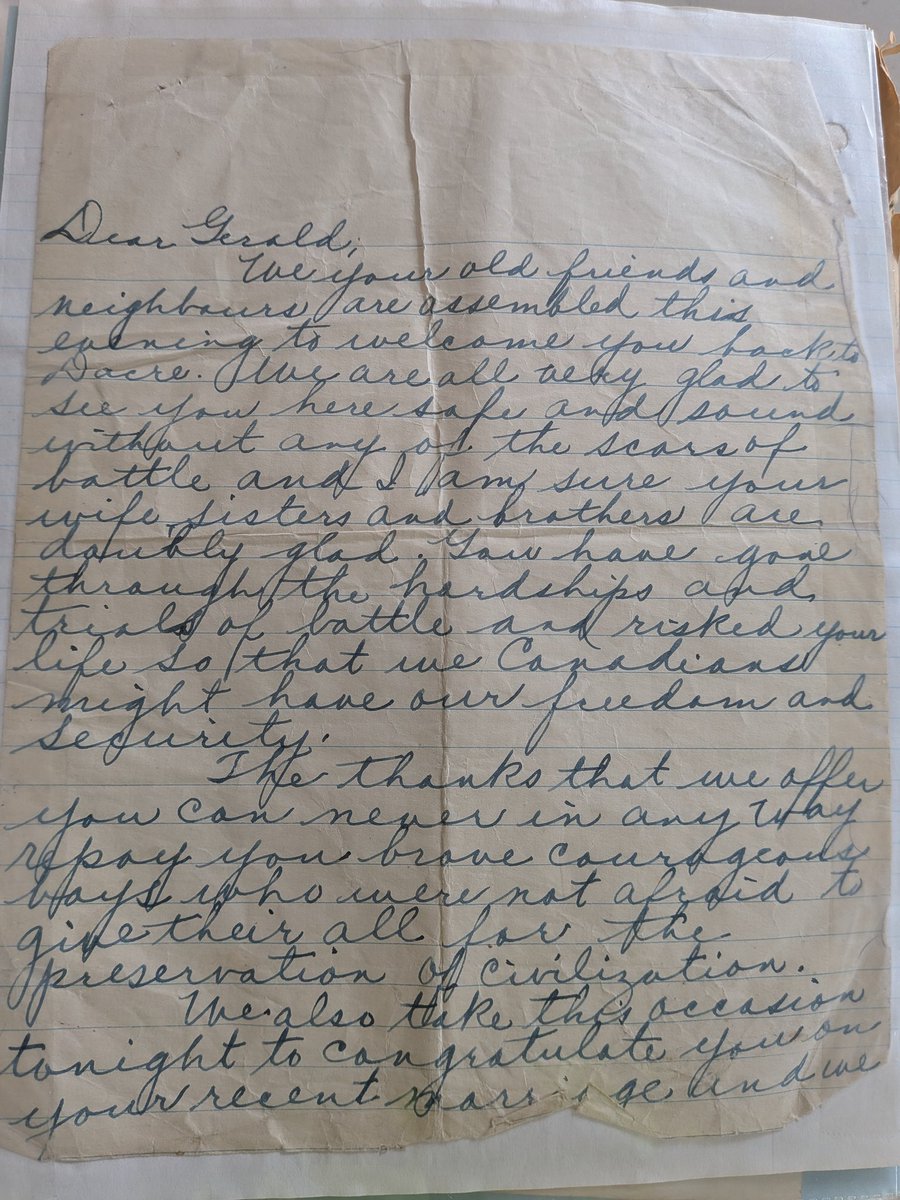 Dear Gerald,
We your old friends and
neighbours are assembled this
evening to welcome you back to
Dacre. We are all very glad to
see you here safe and sound
without any of the scars of
battle and I am sure your
wife, sisters and brothers are
doubly glad. You have gone
through the hardships and
trials of battle and risked your
life so that we Canadians
might have our freedom and
security.
The thanks that we offer
you can never in any way
repay you brave courageous
boys who were not afraid to
give their all for the
preservation of civilization.
We also take this occasion
tonight to congratulate you on
your recent marriage and we